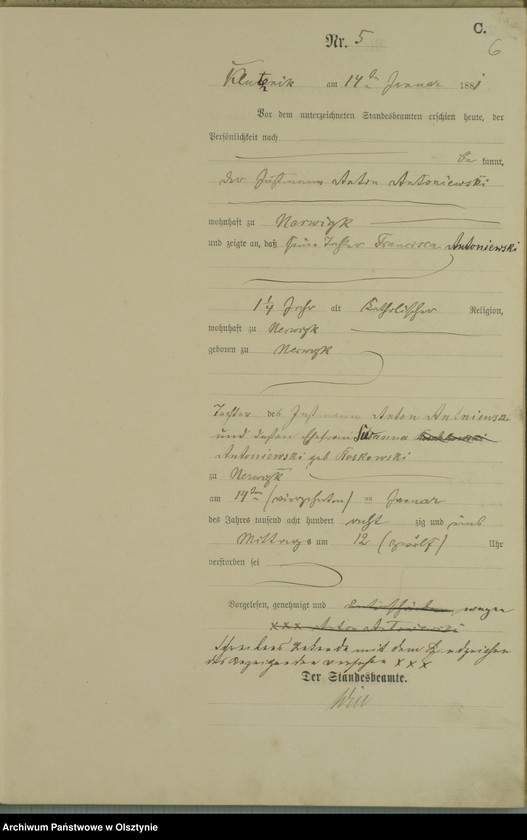 C.
6
Nr. 5
Klutznik am 14ten Januar 1881
Vor dem unterzeichneten Standesbeamten erschien heute, der
Persönlichkeit nach
be kannt,
der Instmann Anton Antoniewski
wohnhaft zu Narwigk
und zeigte an, daß seine Tochter Francisca Antoniewski
1¼ Jahr alt Katholischer Religion,
wohnhaft zu Nerwigk
geboren zu Nerwigk
Tochter des Instmann Anton Antniewski
und dessen Ehefrau Susanna
Antoniewski geb Koskowski
zu Nerwigk
am 14ten (vierzehnten) Januar
des Jahres tausend acht hundert acht zig und eins
Mittags um 12 (zwölf) Uhr
verstorben sei
Vorgelesen, genehmigt und wegen
xxx Anton
Schreibens mit dem Handzeichen
des Anzeigenden versehen xxx
Der Standesbeamte.
Archiwum Państwowe w Olsztynie